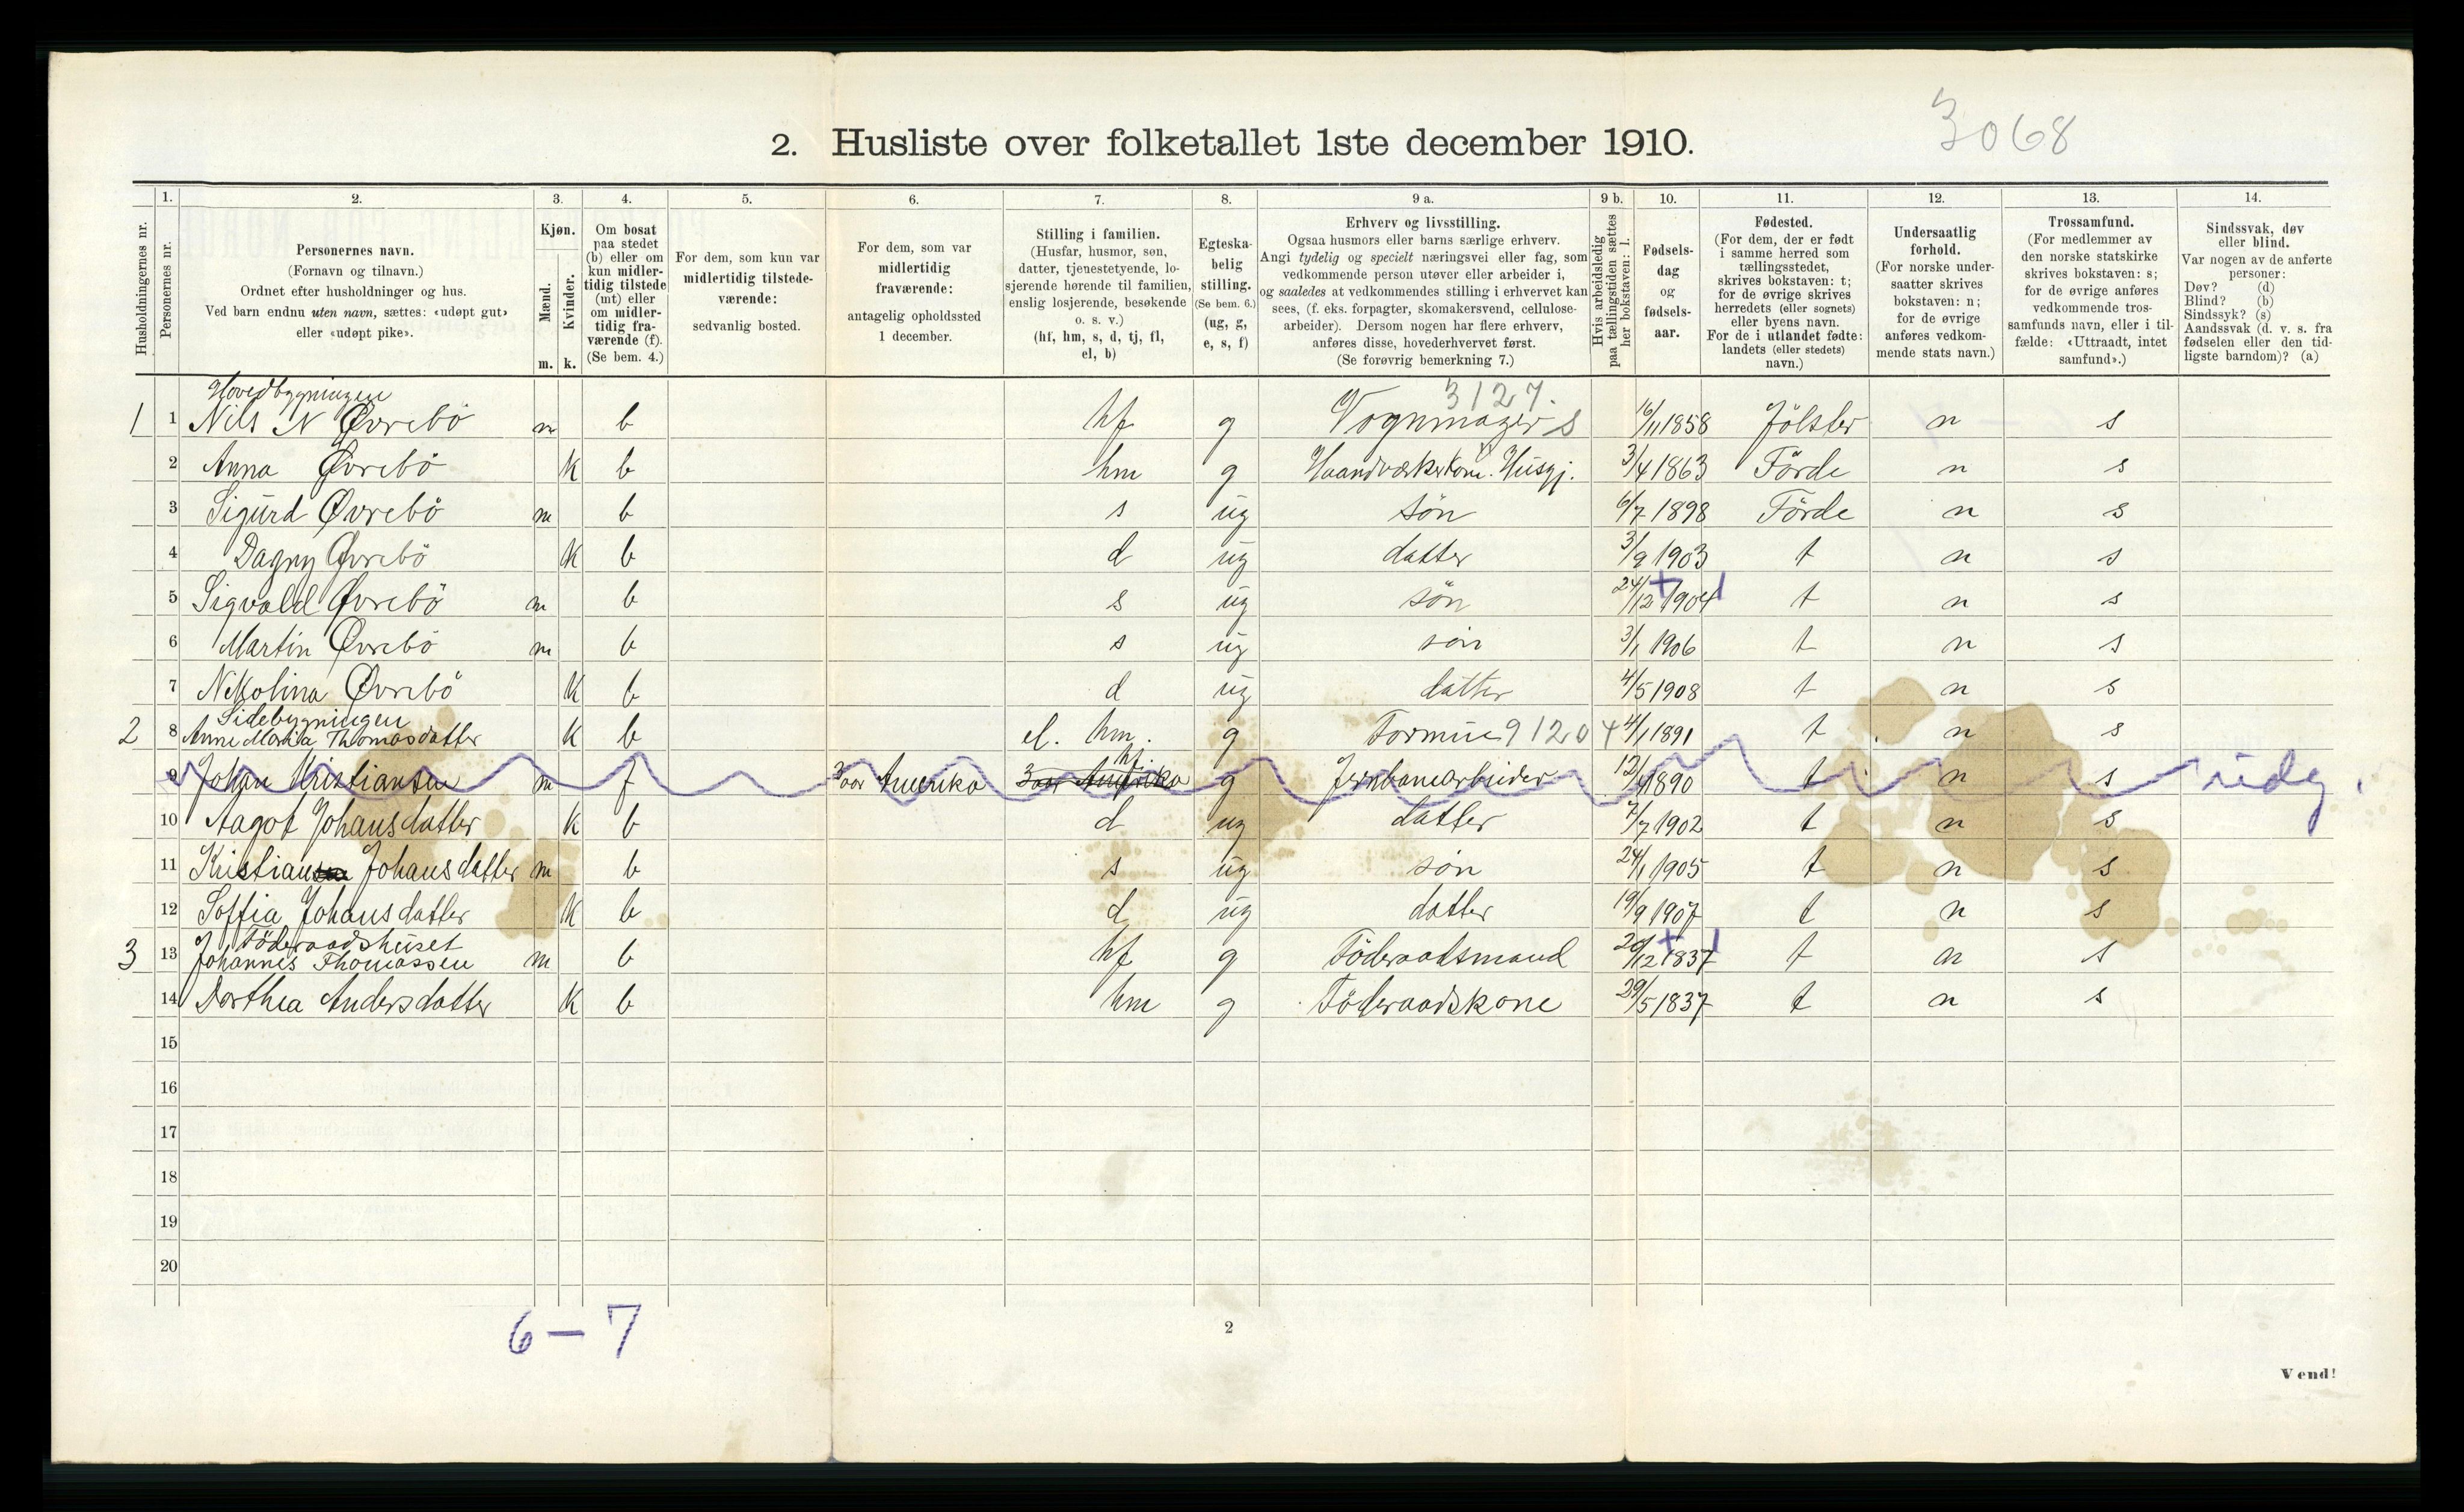 3068
2. Husliste over folketallet 1ste december 1910.
Husholdningernes nr.
1. Personernes nr.
2. Personernes navn.
(Fornavn og tilnavn.)
Ordnet efter husholdninger og hus.
Ved barn endnu uten navn, sættes: «udøpt gut»
eller «udøpt pike».
3. Kjøn.
Mænd. m.
Kvinder. k.
4. Om bosat
paa stedet
(b) eller om
kun midler-
tidig tilstede
(mt) eller
om midler-
tidig fra-
værende (f).
(Se bem. 4.)
5. For dem, som kun var
midlertidig tilstede-
værende:
sedvanlig bosted.
6. For dem, som var
midlertidig
fraværende:
antagelig opholdssted
1 december.
7. Stilling i familien.
(Husfar, husmor, søn,
datter, tjenestetyende, lo-
sjerende hørende til familien,
enslig losjerende, besøkende
o. s. v.)
(hf, hm, s, d, tj, fl,
el, b)
8. Egteska-
belig
stilling.
(Se bem. 6.)
(ug, g,
e, s, f)
9 a. Erhverv og livsstilling.
Ogsaa husmors eller barns særlige erhverv.
Angi tydelig og specielt næringsvei eller fag, som
vedkommende person utøver eller arbeider i,
og saaledes at vedkommendes stilling i erhvervet kan
sees, (f. eks. forpagter, skomakersvend, cellulose-
arbeider). Dersom nogen har flere erhverv,
anføres disse, hovederhvervet først.
(Se forøvrig bemerkning 7.)
9 b. Hvis arbeidsledig
paa tællingstiden sættes
her bokstaven: l.
10. Fødsels-
dag
og
fødsels-
aar.
11. Fødested.
(For dem, der er født
i samme herred som
tællingsstedet,
skrives bokstaven: t;
for de øvrige skrives
herredets (eller sognets)
eller byens navn.
For de i utlandet fødte:
landets (eller stedets)
navn.)
12. Undersaatlig
forhold.
(For norske under-
saatter skrives
bokstaven: n;
for de øvrige
anføres vedkom-
mende stats navn.)
13. Trossamfund.
(For medlemmer av
den norske statskirke
skrives bokstaven: s;
for de øvrige anføres
vedkommende tros-
samfunds navn, eller i til-
fælde: «Uttraadt, intet
samfund».)
14. Sindssvak, døv
eller blind.
Var nogen av de anførte
personer:
Døv? (d)
Blind? (b)
Sindssyk? (s)
Aandssvak (d. v. s. fra
fødselen eller den tid-
ligste barndom)? (a)
Hovedbygningen 3127.
1 1 Nils N Øvrebö m b hf g Vognmager s 16/11 1858 Jölster n s
2 Anna Øvrebö K b hm g Haandværkerkone. Husgj. 3/4 1863 Förde n s
3 Sigurd Øvrebö m b s ug Sön 6/7 1898 Förde n s
4 Dagny Øvrebö K b d ug datter 3/9 1903 t n s
5 Sigvald Øvrebö m b s ug sön 24/12 1904 t n s
6 Martin Øvrebö m b s ug sön 3/1 1906 t n s
7 Nikolina Øvrebö K b d ug datter 4/5 1908 t n s
Sidebygningen
2 8 Anne Maria Thomasdatter K b el. hm. g 91204 4/1 1891 t n s
9 Johan Kristiansen m f 3 aar Amerika 3 aar Amerika hf. g Jernbanearbeider 1890 t n s
10 Aagot Johansdatter K b d ug datter 7/7 1902 t n s
11 Kristian Johansdatter m b s ug sön 24/1 1905 t n s
12 Soffia Johansdatter K b d ug datter 19/9 1907 t n s
Föderaadshuset
3 13 Johannes Thomassen m b hf g Föderaadsmand 20/12 1837 t n s
14 Dorthea Andersdatter K b hm g Föderaadskone 29/5 1837 t n s
15
16
17
18
19
20
6 – 7
2
Vend!